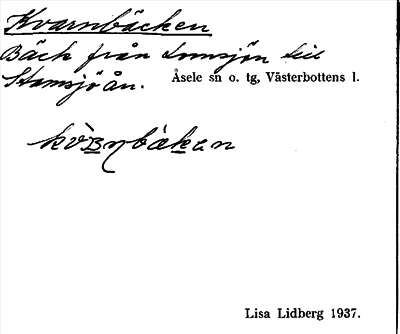 Kvarnbäcken
Bäck från Lomsjön till
Stamsjöån. Åsele sn o. tg, Västerbottens l.
Lisa Lidberg 1937.